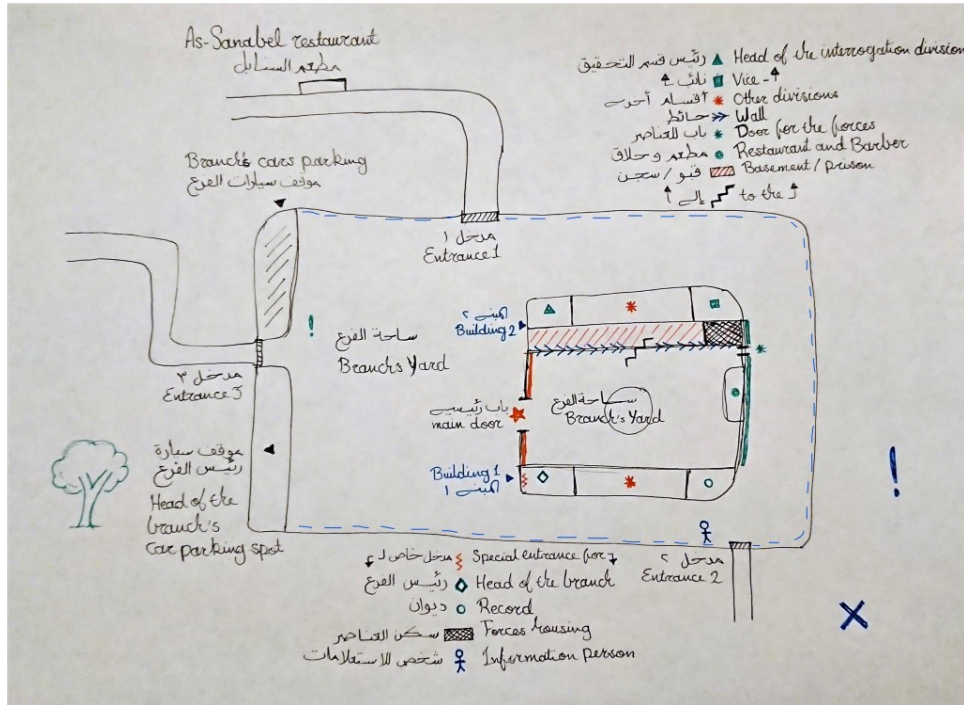 As-Sanabel restaurant
مطعم السنابل
رئيس قسم التحقيق Head of the interrogation division
نائب Vice-
أقسام أخرى Other divisions
حائط Wall
باب للعناصر Door for the forces
مطعم وحلاق Restaurant and Barber
قبو / سجن Basement / prison
إلى to the
Branch's cars parking
موقف سيارات الفرع
مدخل ١
Entrance 1
المبنى ٢
Building 2
!
ساحة الفرع
Branch's Yard
مدخل ٣
Entrance 3
ساحة الفرع
Branch's Yard
باب رئيسي
main door
موقف سيارة
رئيس الفرع
Head of the
branch's
car parking spot
Building 1
المبنى ١
!
مدخل ٢
Entrance 2
مدخل خاص لـ Special entrance for
رئيس الفرع Head of the branch
ديوان Record
سكن العناصر Forces housing
شخص للاستعلامات Information person
X